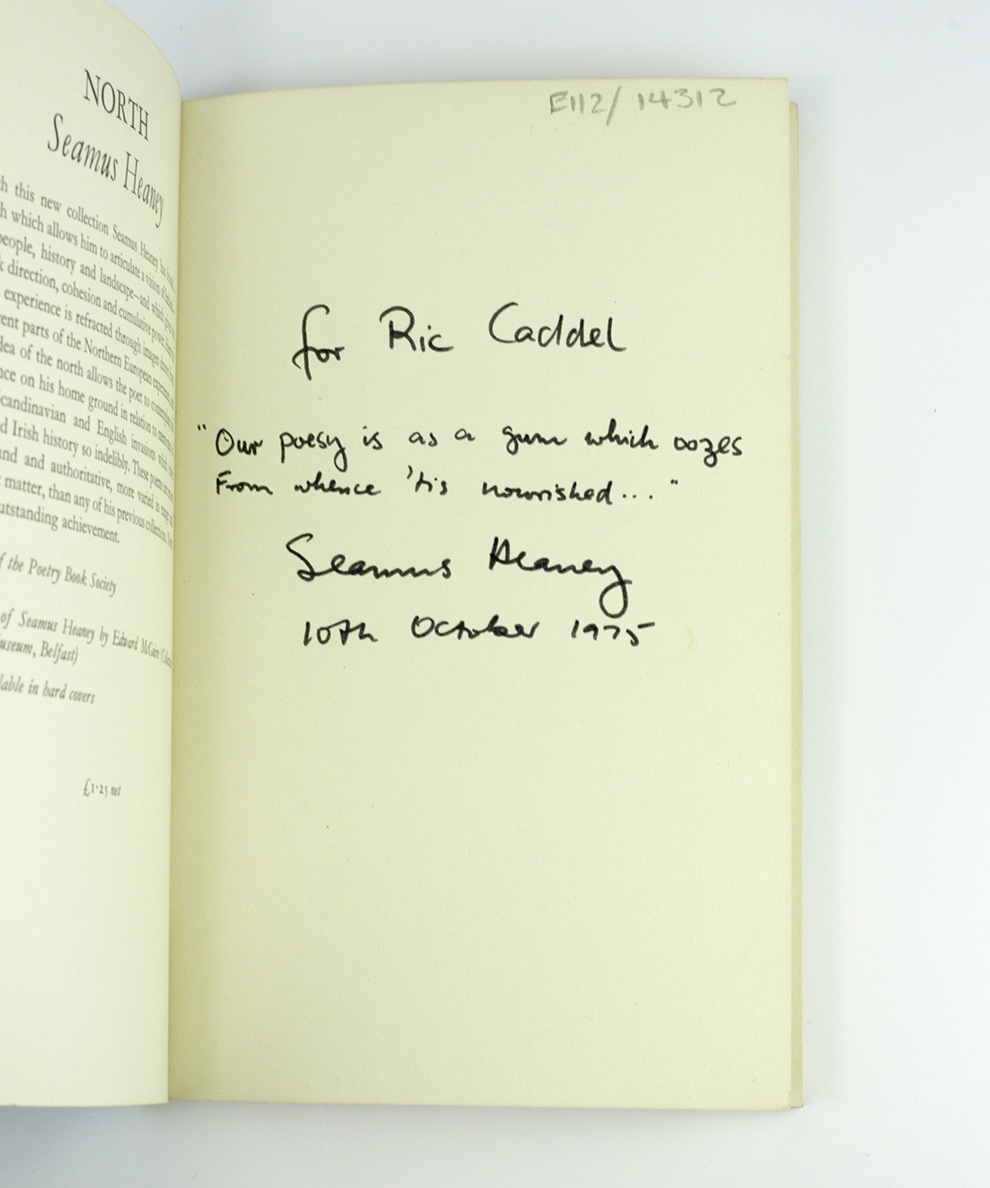 NORTH
Seamus Heaney
h this new collection Seamus Heaney has
h which allows him to articulate a vision of
people, history and landscape—and which
k direction, cohesion and cumulative power.
experience is refracted through images
ent parts of the Northern European experience
dea of the north allows the poet to contemplate
nce on his home ground in relation to
candinavian and English invasions which
d Irish history so indelibly. These poems
nd and authoritative, more varied in range
matter, than any of his previous collection.
utstanding achievement.
f the Poetry Book Society
of Seamus Heaney by Edward McGuire
useum, Belfast)
lable in hard covers
£1·25 net
E112/14312
for Ric Caddel
"Our poesy is as a gum which oozes
From whence 'tis nourished..."
Seamus Heaney
10th October 1975